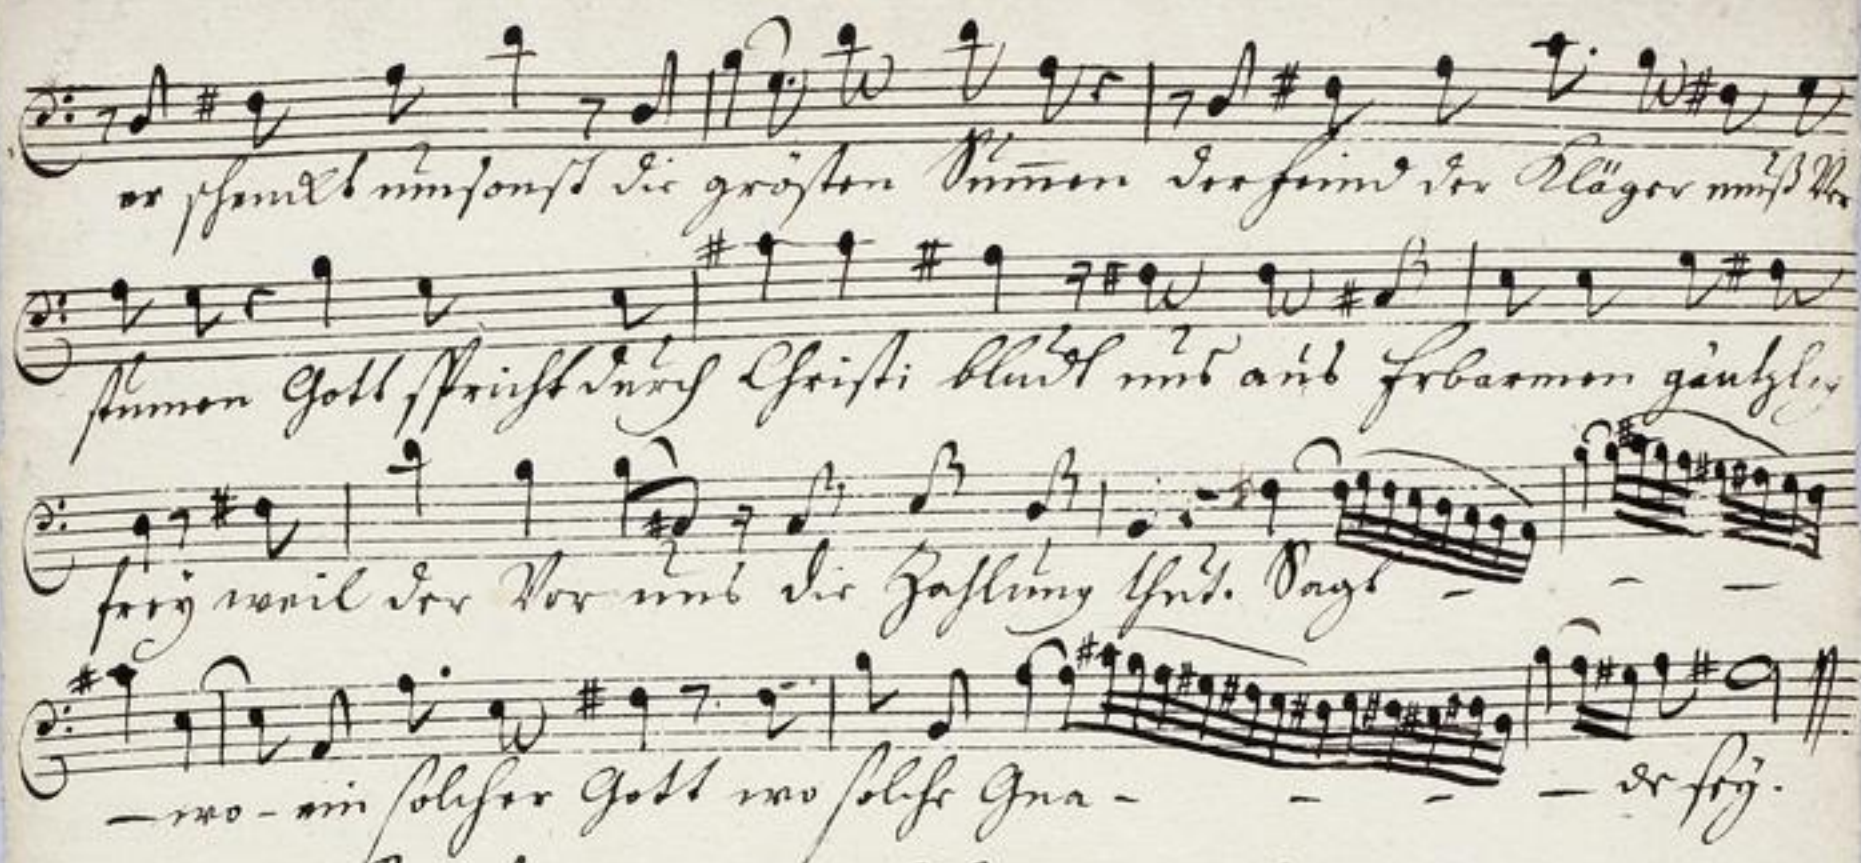 er schenckt umsonst die grösten Sum̅en der feind der Kläger muß Ver
stumen Gott spricht durch Christi bludt uns aus Erbarmen gäntzlich
freӱ weil der Vor uns die Zahlung thut. Sagt - - -
- wo - ein solcher Gott wo solche Gna - - - - de seӱ.